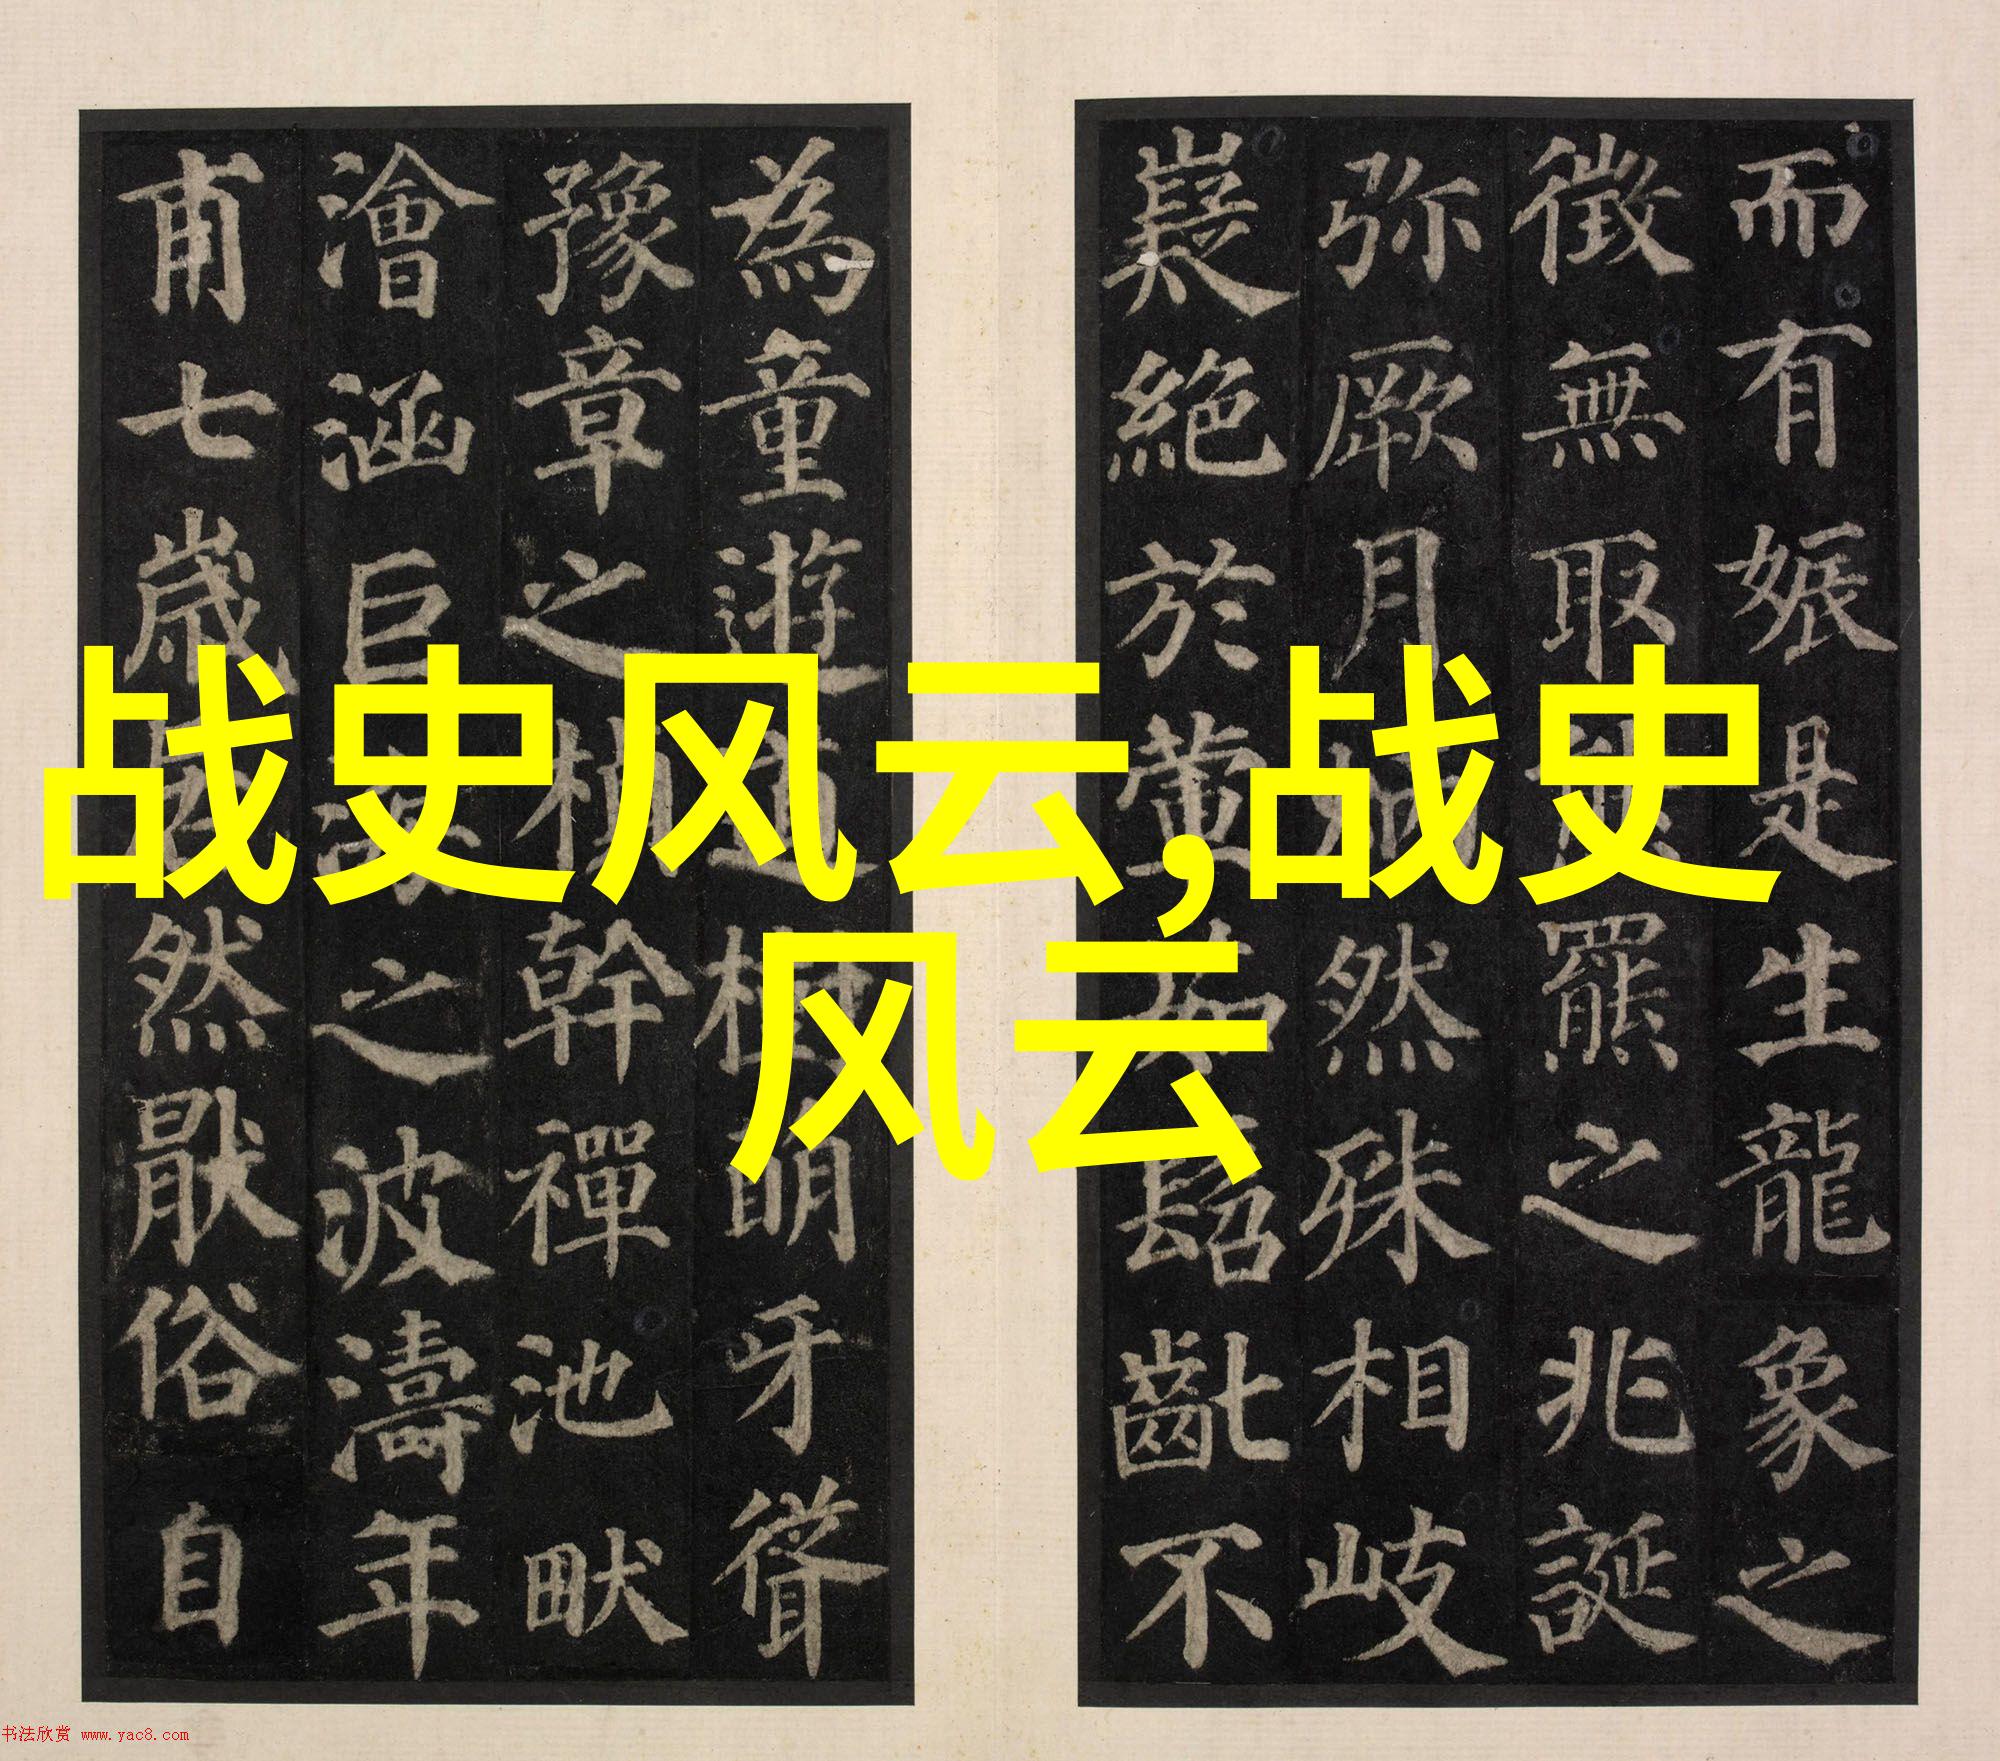 战史风云,战史
风云
而有娠是生龍象之
徵無取熊羆之兆誕
弥厥月炳然殊相岐
嶷絶於葷茹髫齓不
為童遊道樹萌牙聳
豫章之楨幹禪池畎
澮涵巨海之波濤年
甫七歲居然猒俗自
书法欣赏 www.yac8.com